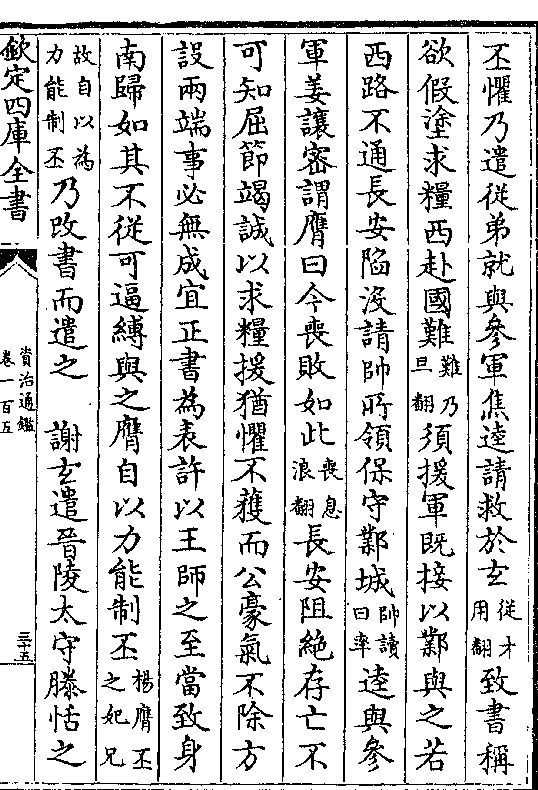 丕懼乃遣從弟就與參軍焦逵請救於玄從才用翻致書稱
欲假塗求糧西赴國難難乃旦翻須援軍既接以鄴與之若
西路不通長安陷没請帥所領保守鄴城帥讀曰率逵與參
軍姜讓密謂膺曰今喪敗如此喪息浪翻長安阻絶存亡不
可知屈節竭誠以求糧援猶懼不獲而公豪氣不除方
設兩端事必無成宜正書為表許以王師之至當致身
南歸如其不從可逼縛與之膺自以力能制丕楊膺丕之妃兄
故自以為力能制丕乃改書而遣之 謝玄遣晉陵太守滕恬之
欽定四庫全書
資治通鑑
卷一百五
三十五